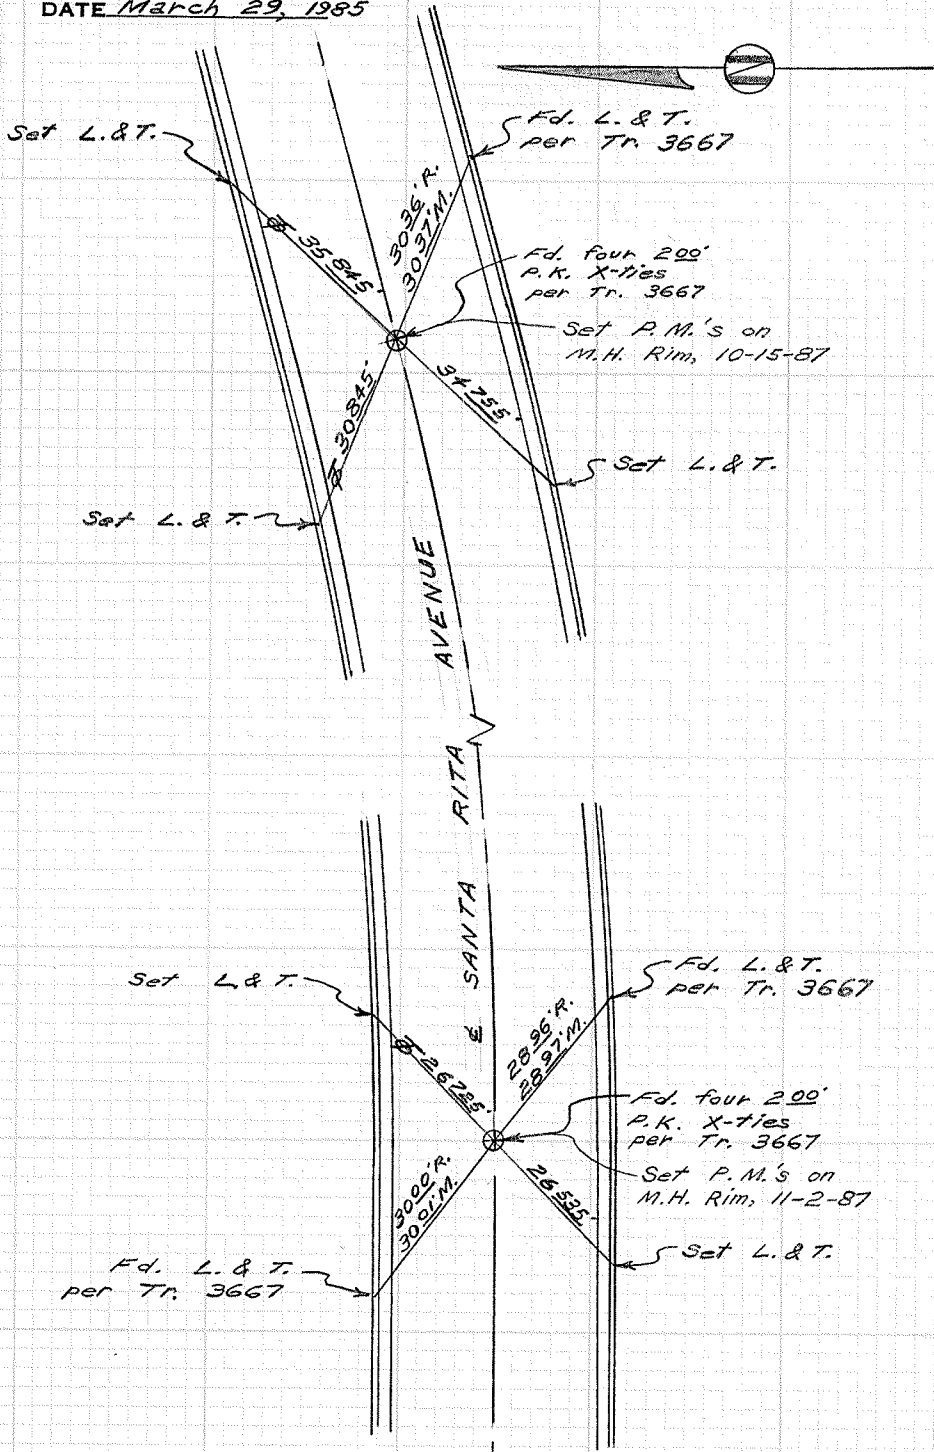 DATE March 29, 1985
Set L. & T.
Fd. L. & T.
per Tr. 3667
30 36' R.
30 37' M.
35 845'
Fd. four 2 00'
P.K. X-ties
per Tr. 3667
Set P.M.'s on
M.H. Rim, 10-15-87
30 845'
34 755'
Set L. & T.
Set L. & T.
℄ SANTA RITA AVENUE
Set L. & T.
Fd. L. & T.
per Tr. 3667
28 96' R.
28 97' M.
26 725'
Fd. four 2 00'
P.K. X-ties
per Tr. 3667
Set P.M.'s on
M.H. Rim, 11-2-87
30 00' R.
30 01' M.
26 535'
Set L. & T.
Fd. L. & T.
per Tr. 3667